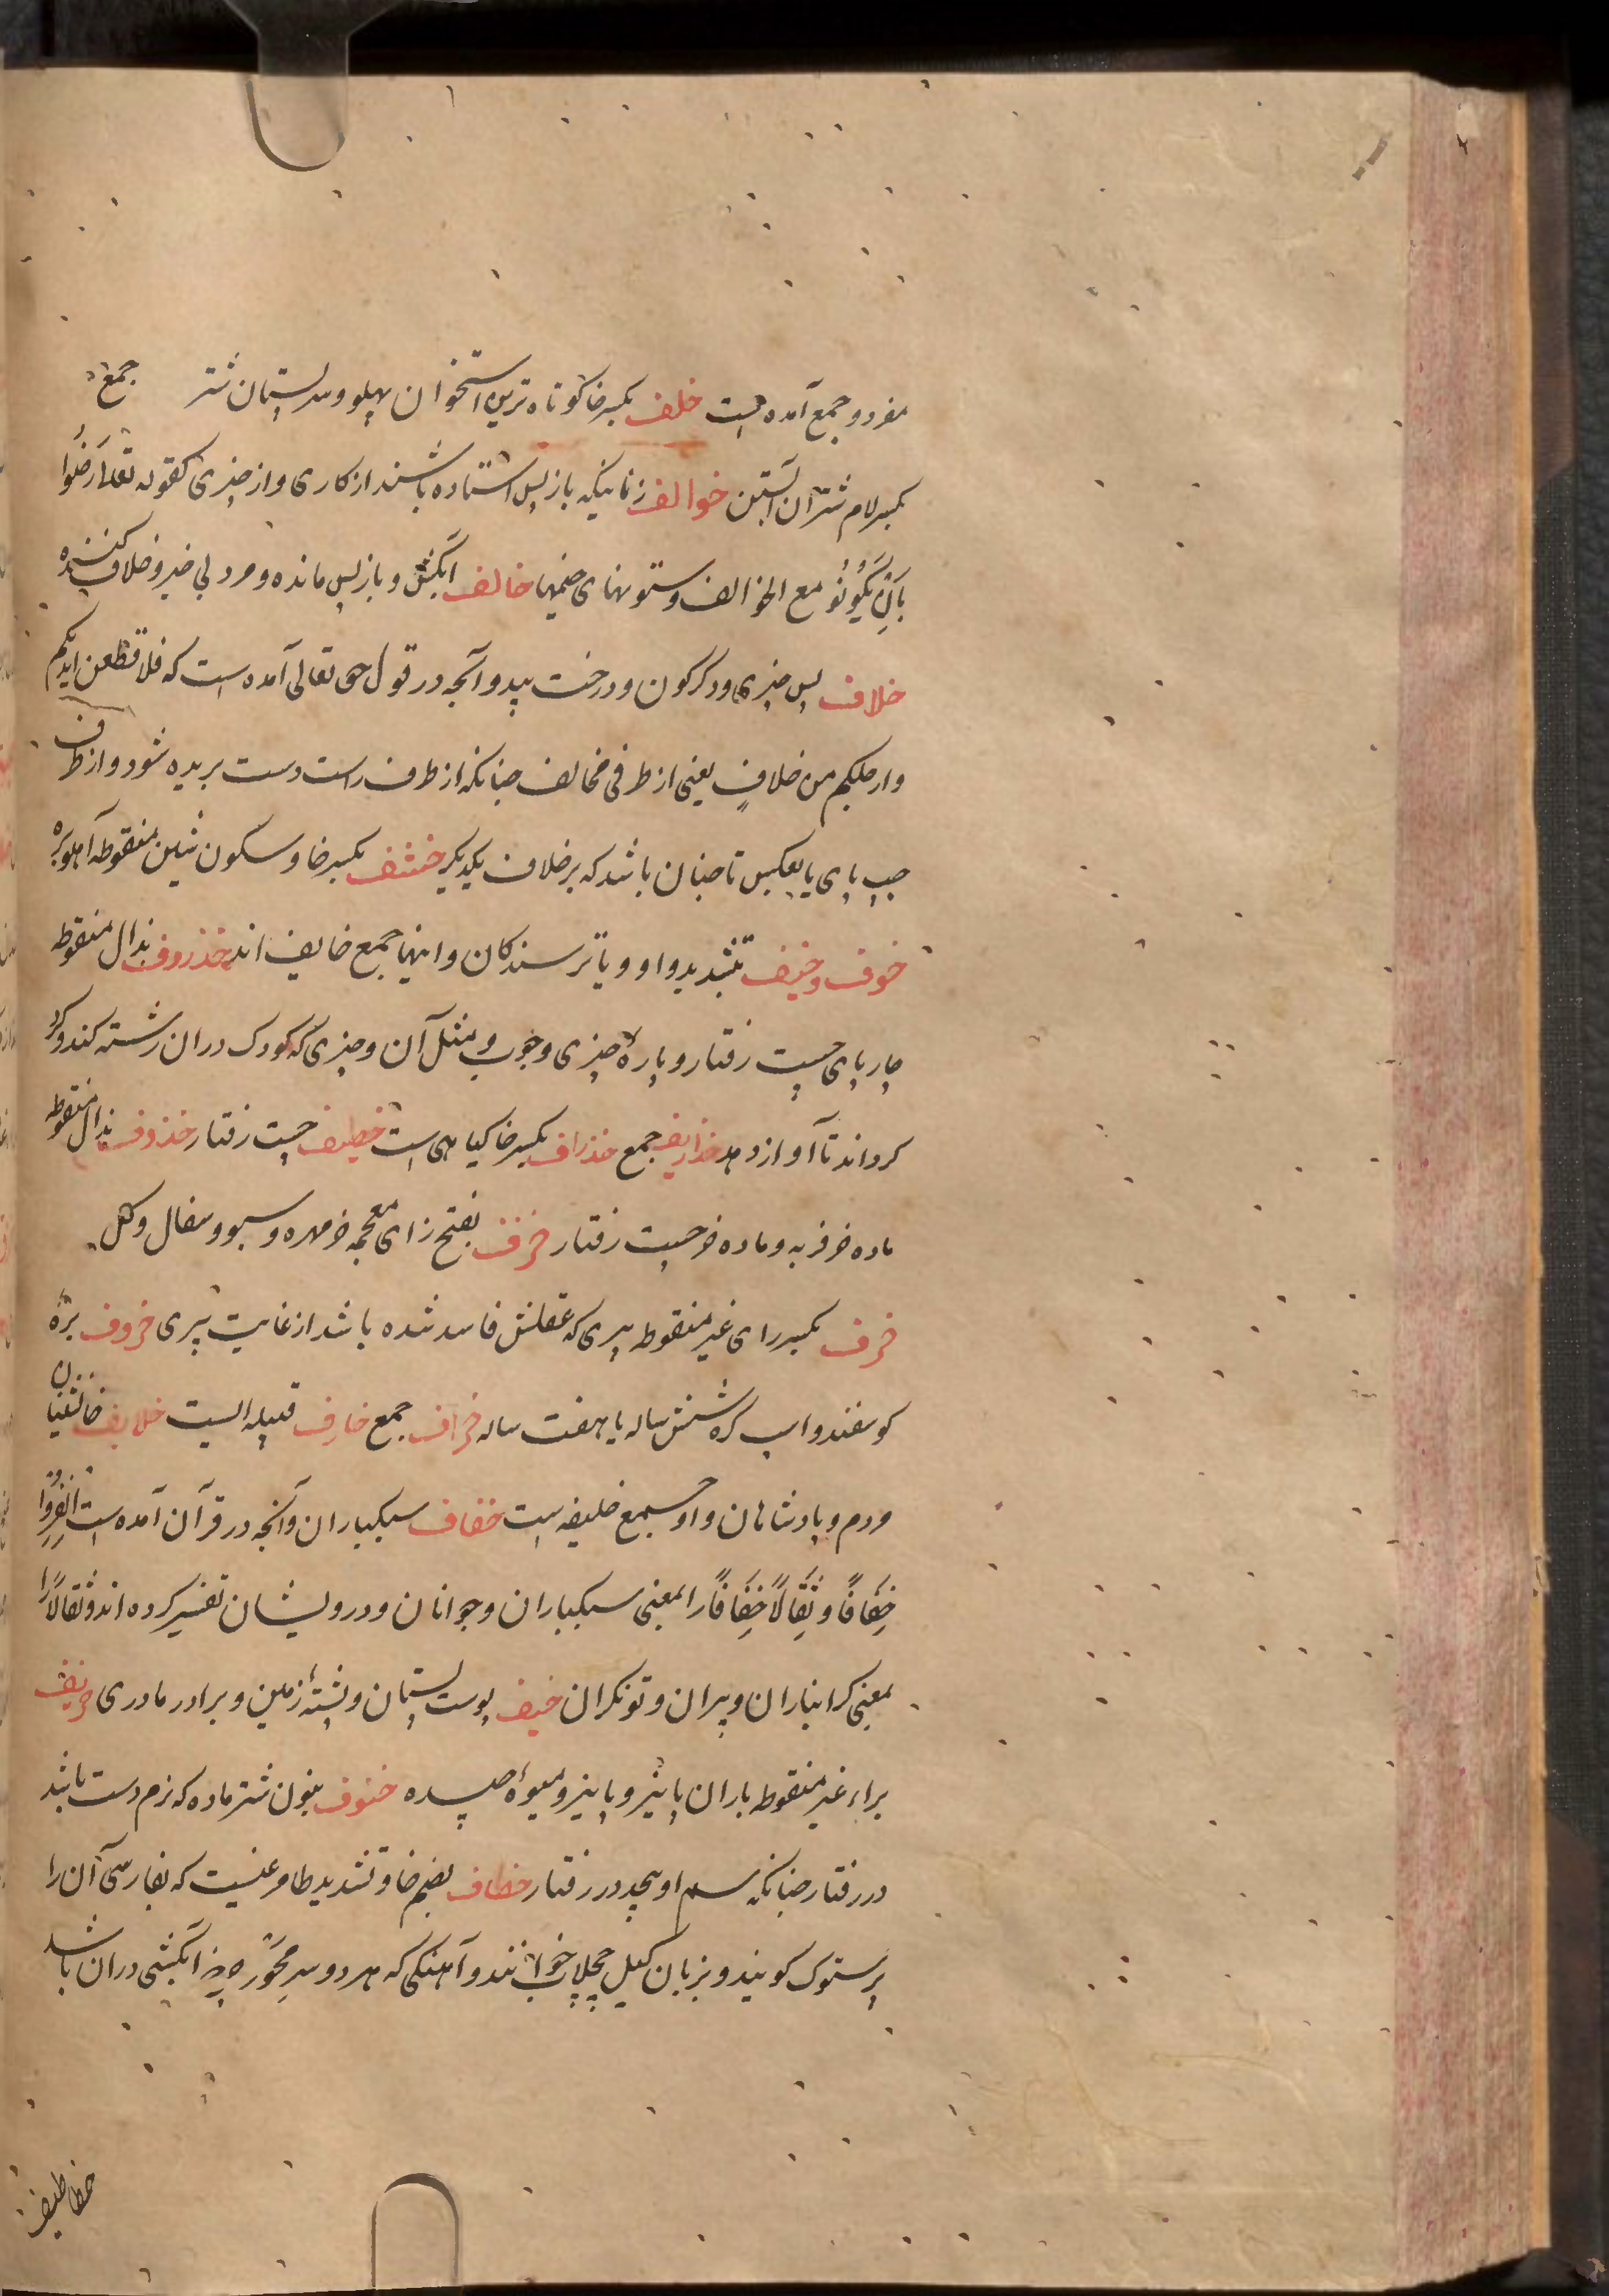 مفرد و جمع آمده است خلف بکسر خا کوتاه ترین استخوان پهلو و سر پستان شتر جمع
بکسر لام شتران آبستن خوالف زنانیکه باز پس استاده باشند از کاری و از چیزی کقوله تعالی رَضُوا
بِاَنْ یَکُونُو مع الخوالف و ستونهای خیمها خالف آبکش و باز پس مانده و مرد بی خیر و خلاف کننده
خلاف پس چیزی و دکرکون و درخت بید و آنچه در قول حق تعالی آمده است که فلاقطعن ایدیکم
وارجلکم من خلافٍ یعنی از طرفی مخالف چنانکه از طرف راست دست بریده شود و از طرف
چپ پای یا بعکس تا چنان باشد که بر خلاف یکدیگر خشف بکسر خا و سکون شین منقوطه آهو بره
خوف و خیف بتشدید واو و یا ترسندکان و اینها جمع خایف اند خذروف بذال منقوطه
چارپای چست رفتار و پارهٔ چیزی و چوب و مثل آن و چیزی که کودک در ان رشته کند و کرد
کرداند تا آواز دهد خذاریف جمع خذراف بکسر خا کیاهی است خطیف چست رفتار خذوف بذال منقوطه
ماده خر فربه و ماده خر چست رفتار خزف بفتح زای معجمه خرمهره و سبو و سفال و کل
خرف بکسر رای غیر منقوطه پیری که عقلش فاسد شده باشد از غایت پیری خروف برهٔ
کوسفند و اسپ کرهٔ شش ساله یا هفت ساله خراف جمع خارف قبیله ایست خلایف
مردم و پادشاهان و او جمع خلیفه است خفاف سبکباران و آنچه در قرآن آمده است اِنْفِرُوْا
خِفَافًا وَ ثِقَالًا خِفَافًا را بمعنی سبکباران و جوانان و درویشان تفسیر کرده اند و ثقالًا را
بمعنی کرانباران و پیران و توانکران خیف پوست پستان و پشتهٔ زمین و برادر مادری خریف
براء غیر منقوطه باران پائیز و پاییز و میوهٔ خنوف بنون شتر ماده که نرم دست باشد
در رفتار چنانکه سم او بپیچد در رفتار خطاف بضم خا و تشدید طا مرغیست که بفارسی آن را
پرستوک کویند و بزبان کیل خوانند و آهنکی که هر دو سر محور چرخ آبکشی در ان باشد
خطاطیف